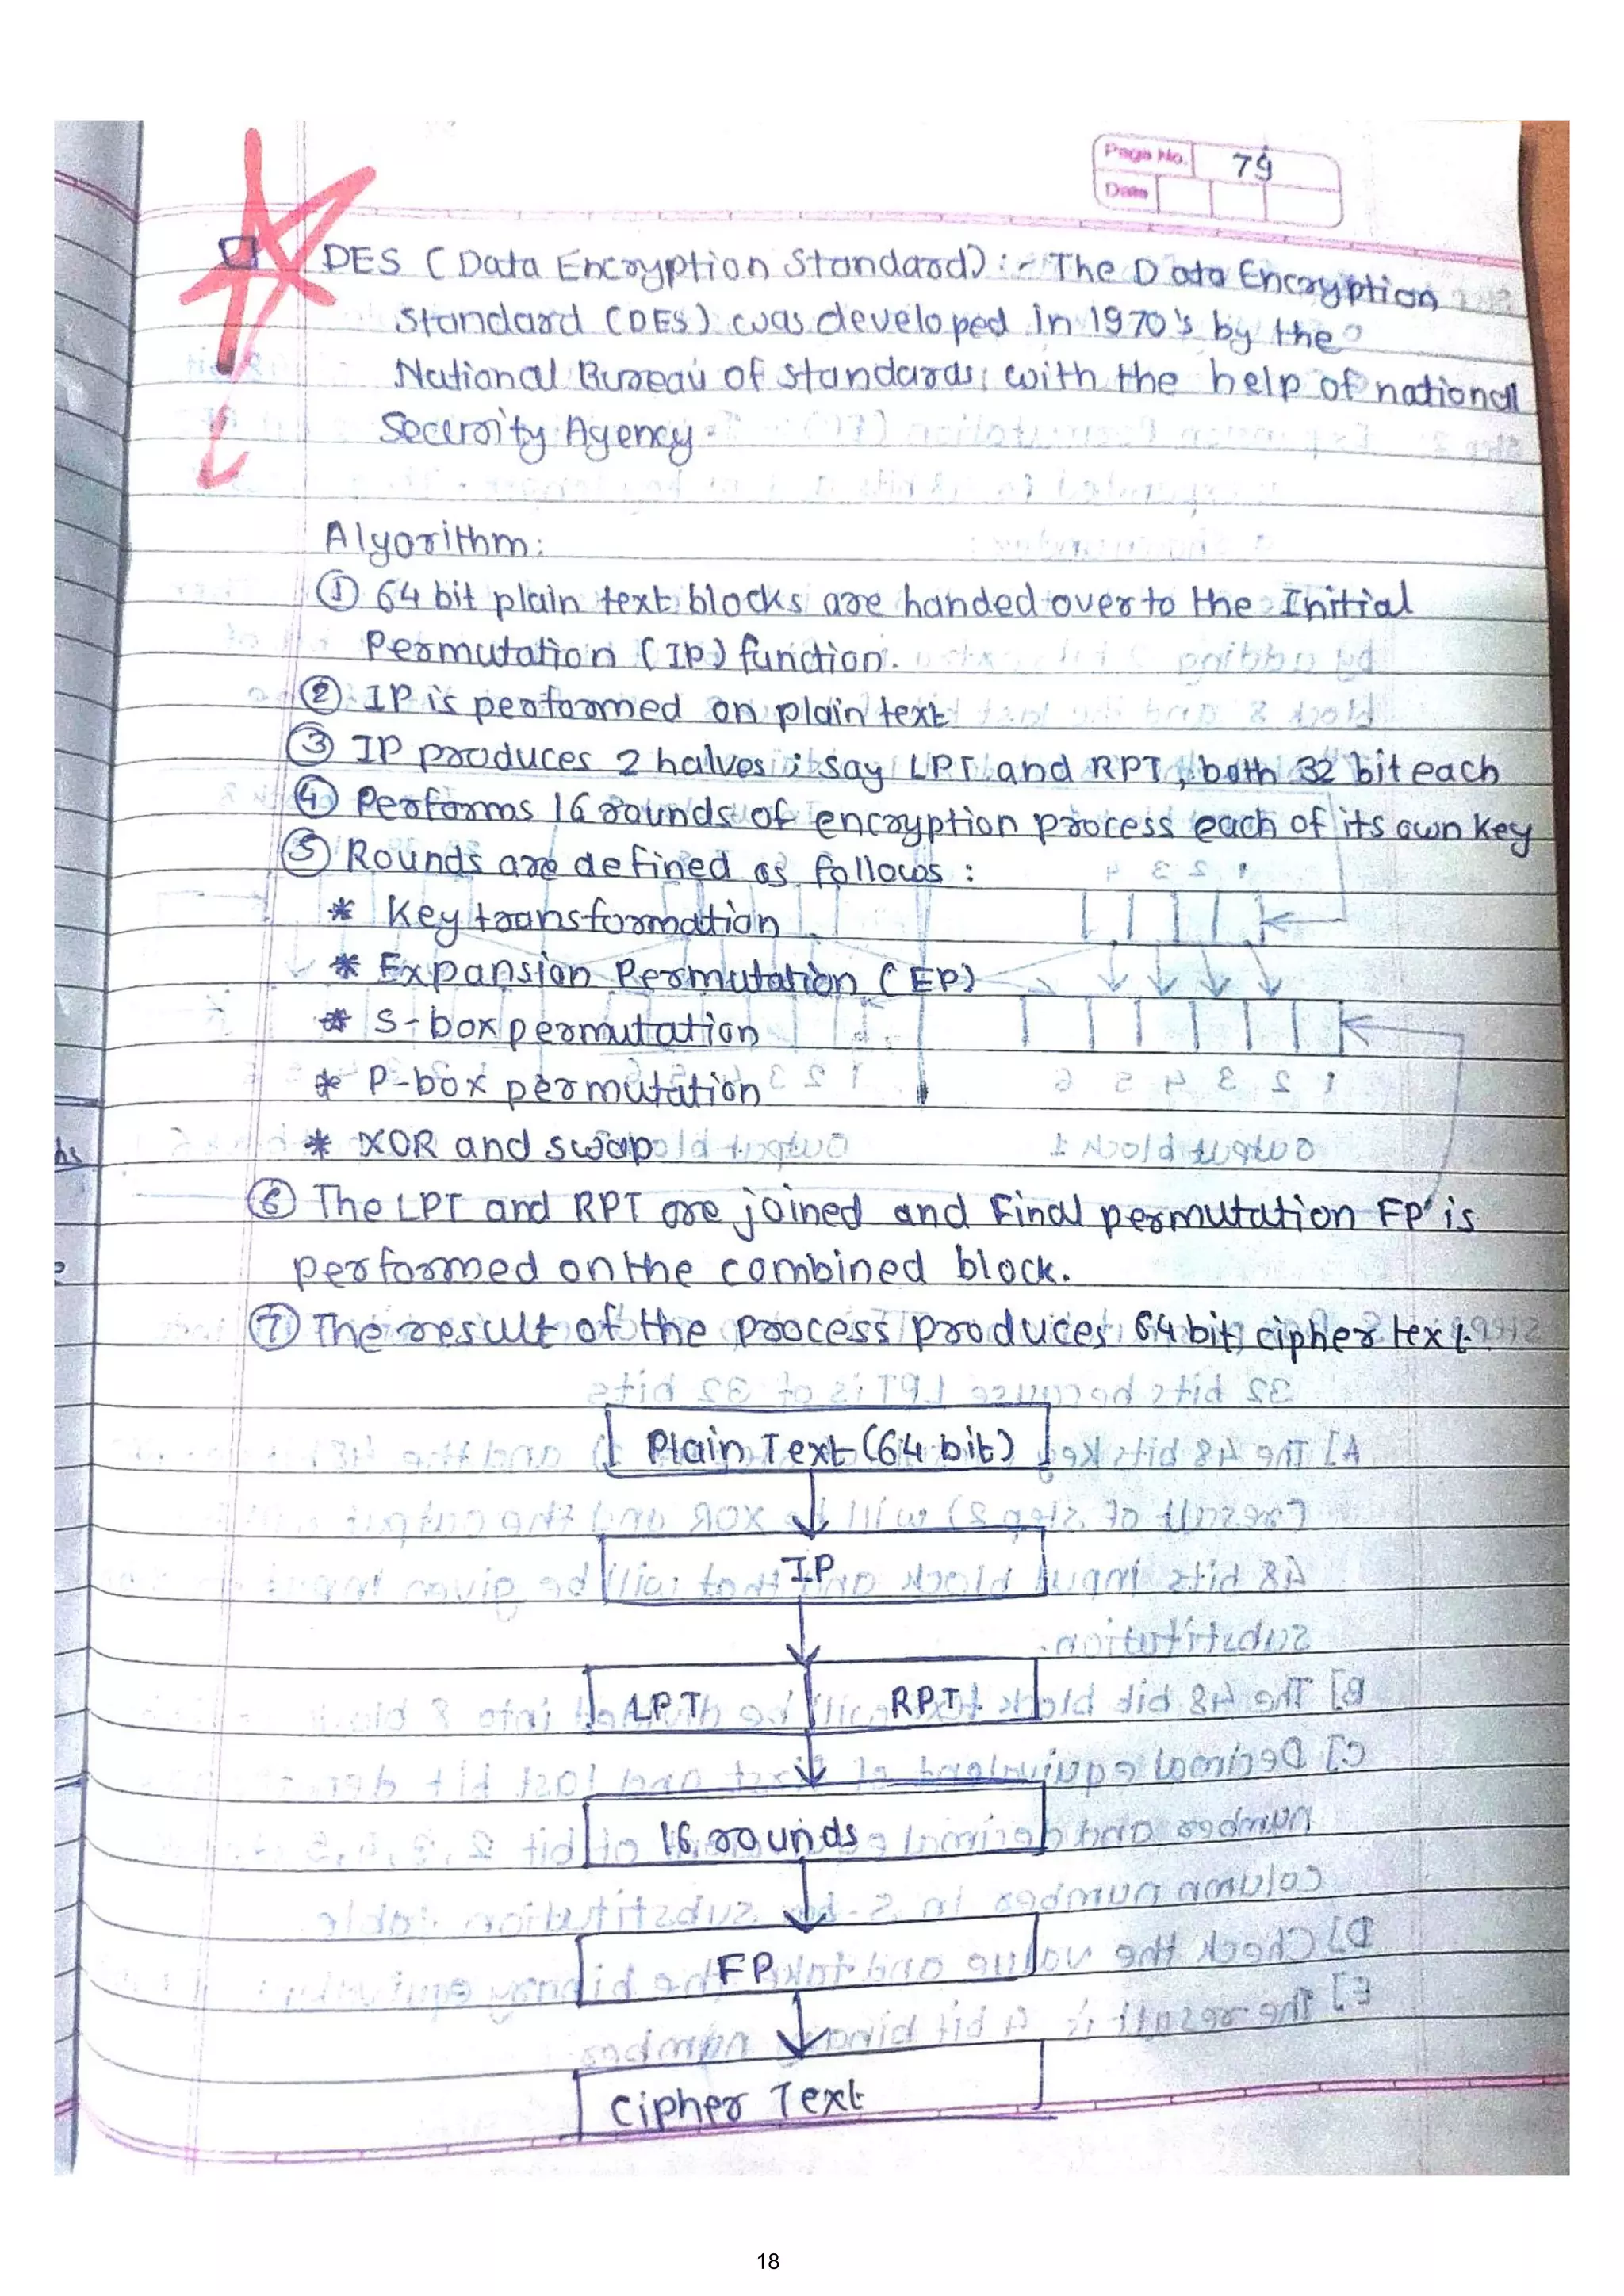 Page No. 79
Date
DES (Data Encryption Standard) :- The Data Encryption
Standard (DES) was developed in 1970's by the
National Bureau of standards with the help of national
Security Agency.
Algorithm:
① 64 bit plain text blocks are handed over to the Initial
Permutation (IP) function.
② IP is performed on plain text
③ IP produces 2 halves ; say LPT and RPT, both 32 bit each
④ Performs 16 rounds of encryption process each of its own key
⑤ Rounds are defined as follows :
* Key transformation
* Expansion Permutation (EP)
* S-box permutation
* P-box permutation
* XOR and swap
⑥ The LPT and RPT are joined and Final permutation FP is
performed on the combined block.
⑦ The result of the process produces 64 bit cipher text.
Plain Text (64 bit)
IP
LPT RPT
16 rounds
FP
Cipher Text
18